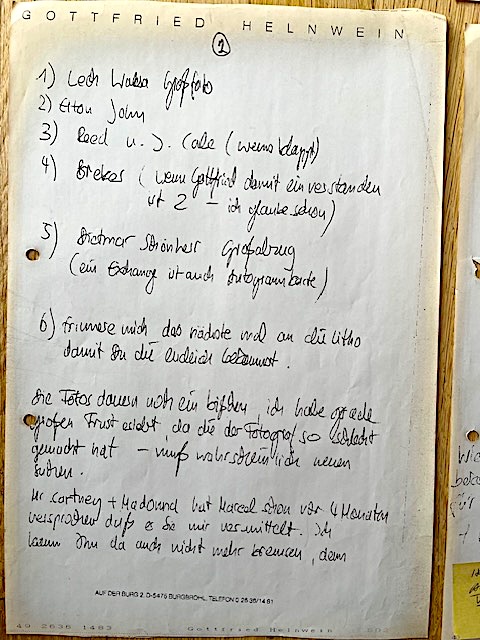 GOTTFRIED HELNWEIN
2
1) Lech Walesa Großfoto
2) Elton John
3) Reed u. J. Cale (wenns klappt)
4) Breker (wenn Gottfried damit einverstanden
ist – ich glaube schon)
5) Dietmar Schönherr Großabzug
(ein Exchange ist auch Autogrammkarte)
6) Erinnere mich das nächste mal an die Litho
damit Du die endlich bekommst.
Die Fotos dauern noch ein bißchen, ich habe gerade
großen Frust erlebt, da die der Fotograf so schlecht
gemacht hat – muß wahrscheinlich neuen
suchen.
Mc Cartney + Madonna hat Marcel schon vor 4 Monaten
versprochen daß er Sie mir vermittelt. Ich
kann Ihn da auch nicht mehr bremsen, denn
AUF DER BURG 2, D-5475 BURGBROHL, TELEFON 0 26 36/14 81
49 2636 1483 Gottfried Helnwein 802